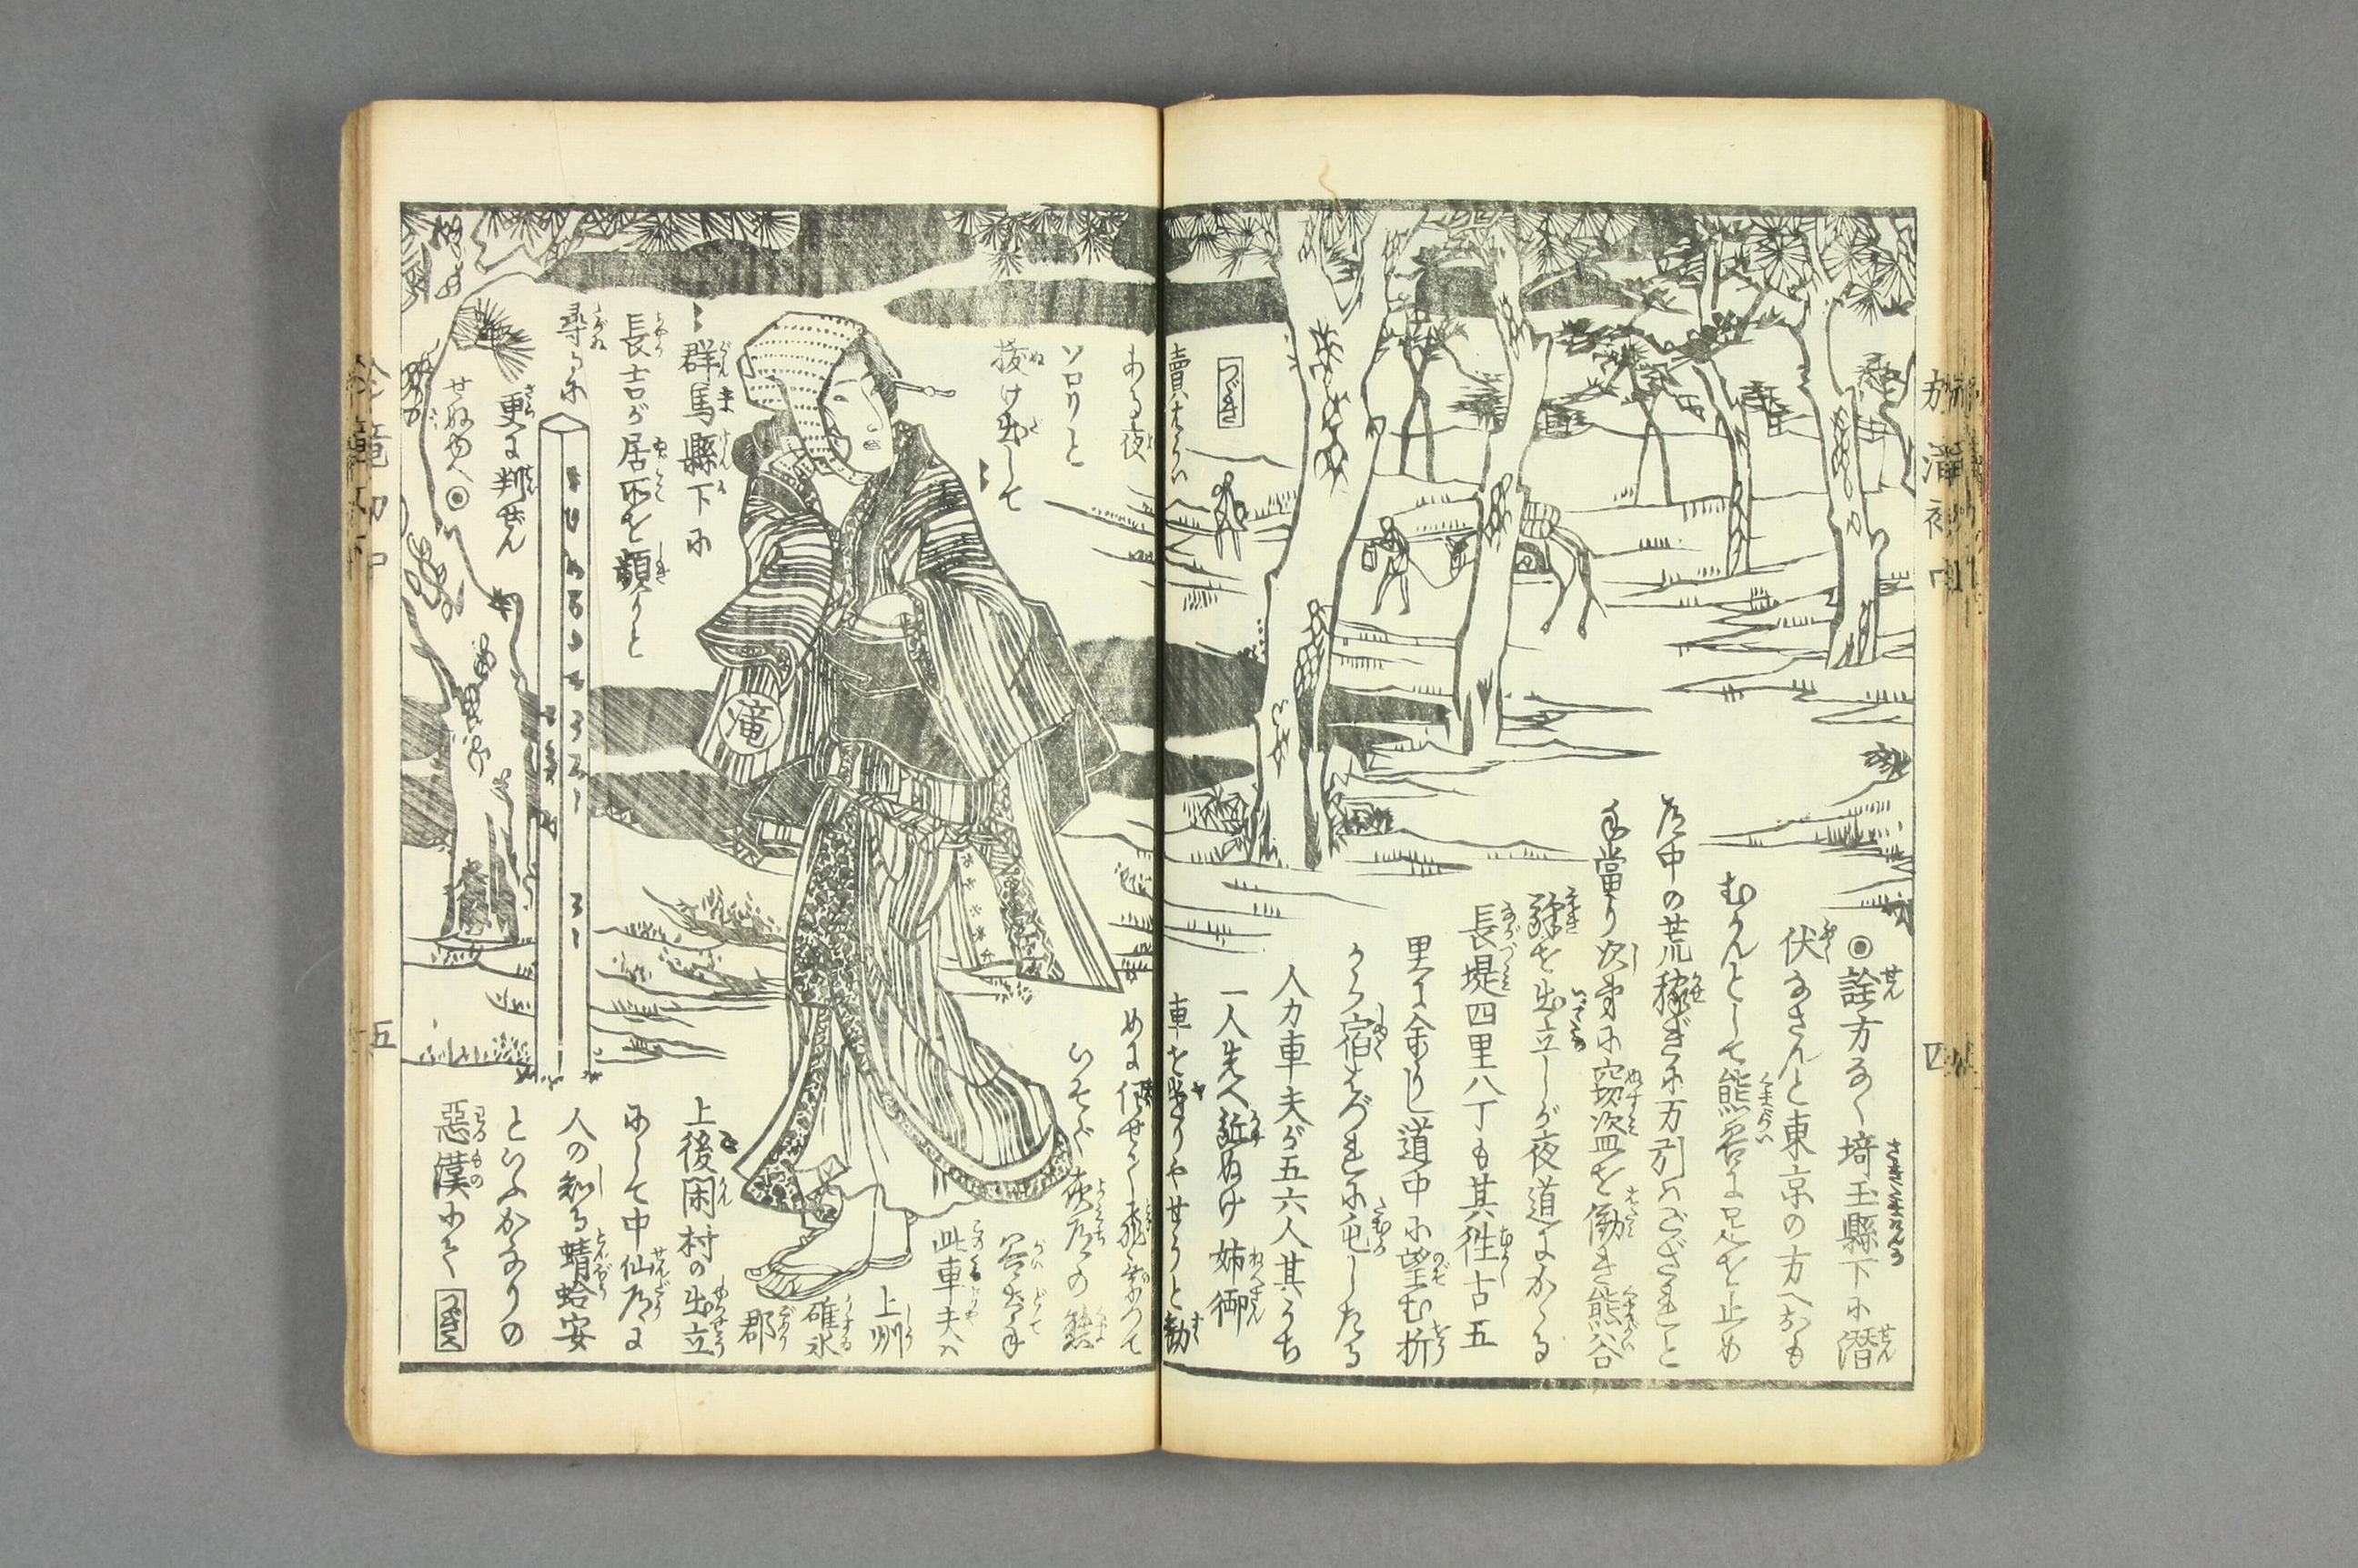 つゞき
賣はらい
ある夜
ソロリと
抜け出して
群馬縣下に
長吉が居所を頼りと
尋るに
更に判ぜん
せねゆへ◉
◉詮方なく埼玉縣下に潜
伏なさんと東京の方へおも
むかんとして熊谷に足を止め
道中の荒稼ぎに万引はござれと
手當り次第に窃盗を働き熊谷
驛を出立しが夜道にかゝる
長堤四里八丁も其徃古五
里に余りし道中に望む折
から宿はづれに屯したる
人力車夫が五六人其うち
一人先へ近ぬけ姉御
車をやりやせうと勸
めに任せて飛乗つて
いそぐ夜道の
此車夫ハ
上州
碓氷
郡
上後閑村の出立
にして中仙道に
人の知る蜻蛤安
といふかなりの
惡漢にて
つぎへ
滝
五
四